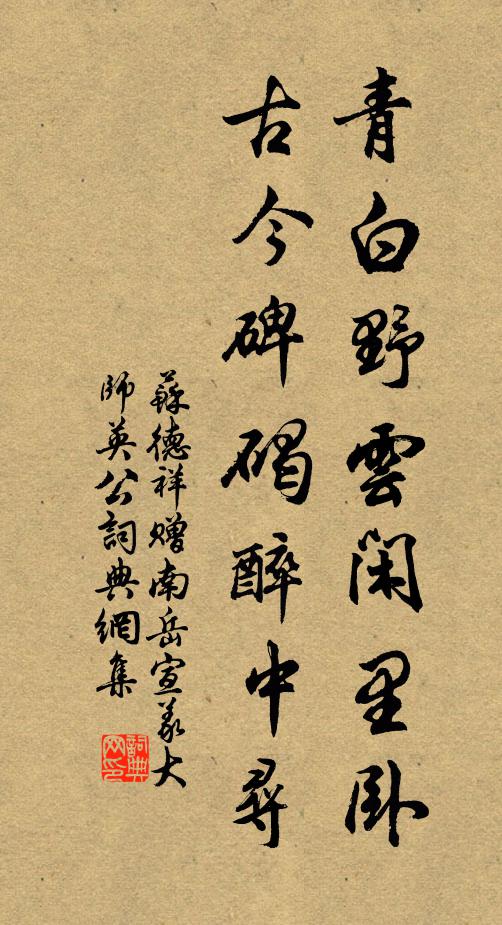 青白野雲閑里卧
古今碑碣醉中尋
蘇德祥贈南岳宣義大
師英公詞典網集
詞典网印